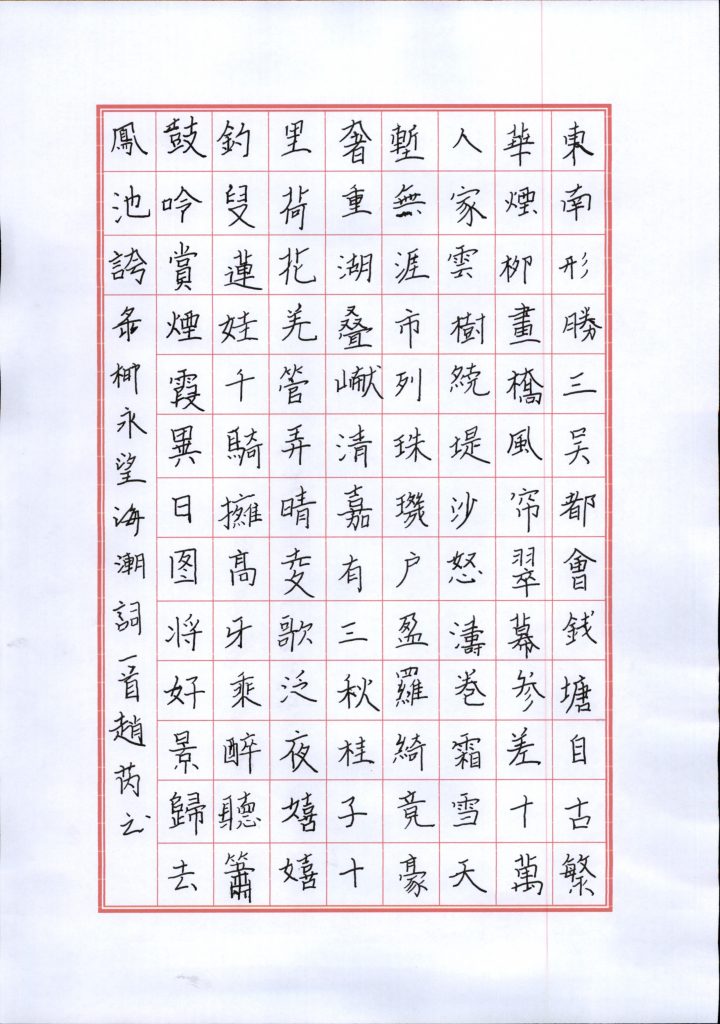 東南形勝三吴都會錢塘自古繁
華煙柳畫橋風帘翠幕參差十萬
人家雲樹繞堤沙怒濤卷霜雪天
塹無涯市列珠璣户盈羅綺竞豪
奢重湖叠巘清嘉有三秋桂子十
里荷花羌管弄晴菱歌泛夜嬉嬉
釣叟蓮娃千騎擁高牙乘醉聽簫
鼓吟賞煙霞異日图将好景歸去
鳳池誇 柳永望海潮詞一首趙芮书